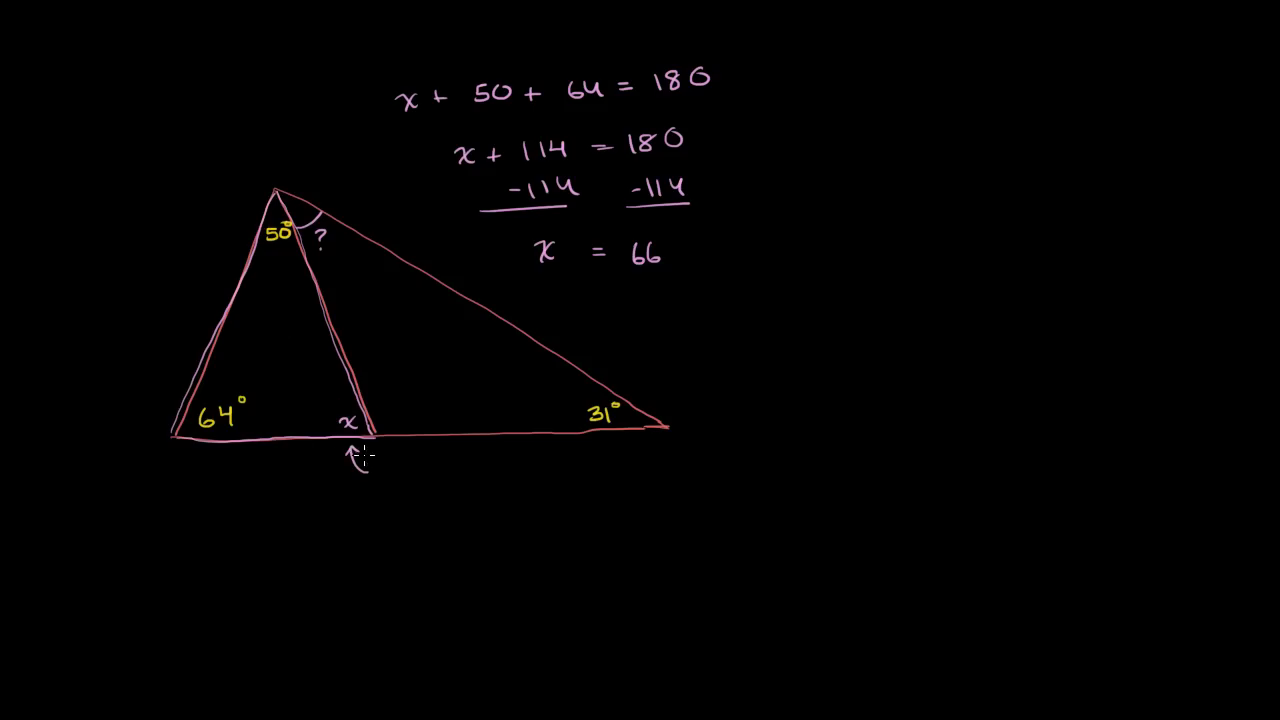 x + 50 + 64 = 180
x + 114 = 180
-114 -114
x = 66
50°
?
64°
x
31°